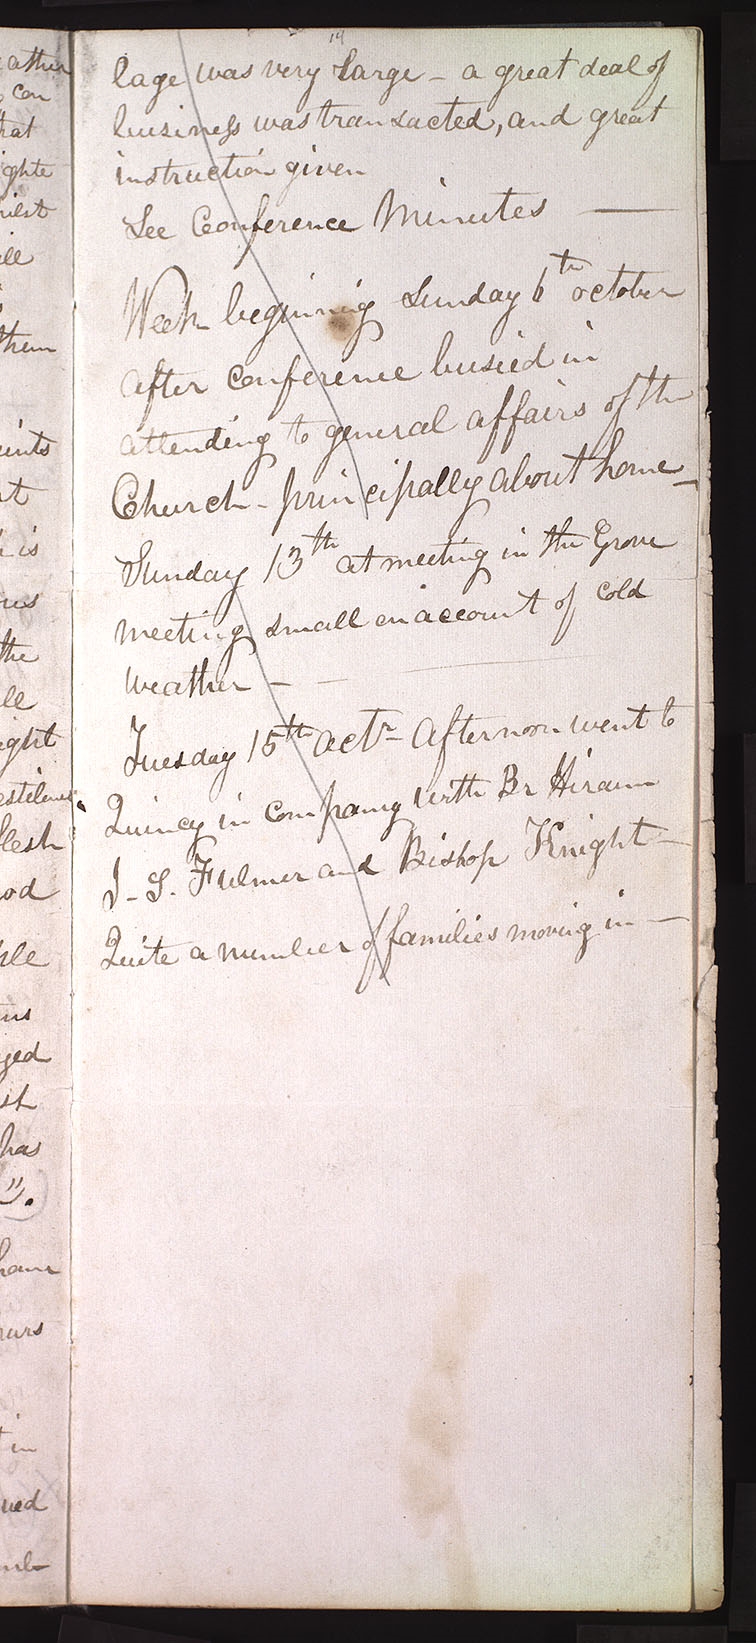 14
lage was very large - a great deal of
business was transacted, and great
instruction given
See Conference Minutes —
Week beginning Sunday 6th october
after conference busied in
attending to general affairs of the
Church - principally about home -
Sunday 13th at meeting in the Grove
meeting small on account of cold
weather - -
Tuesday 15th octr - afternoon went to
Quincy in company with Br Hiram
J. S. Fulmer and Bishop Knight -
Quite a number of families moving in -
ather
con
hat
ill
them
ints
t
is
ous
the
ight
flesh
ple
ged
has
in